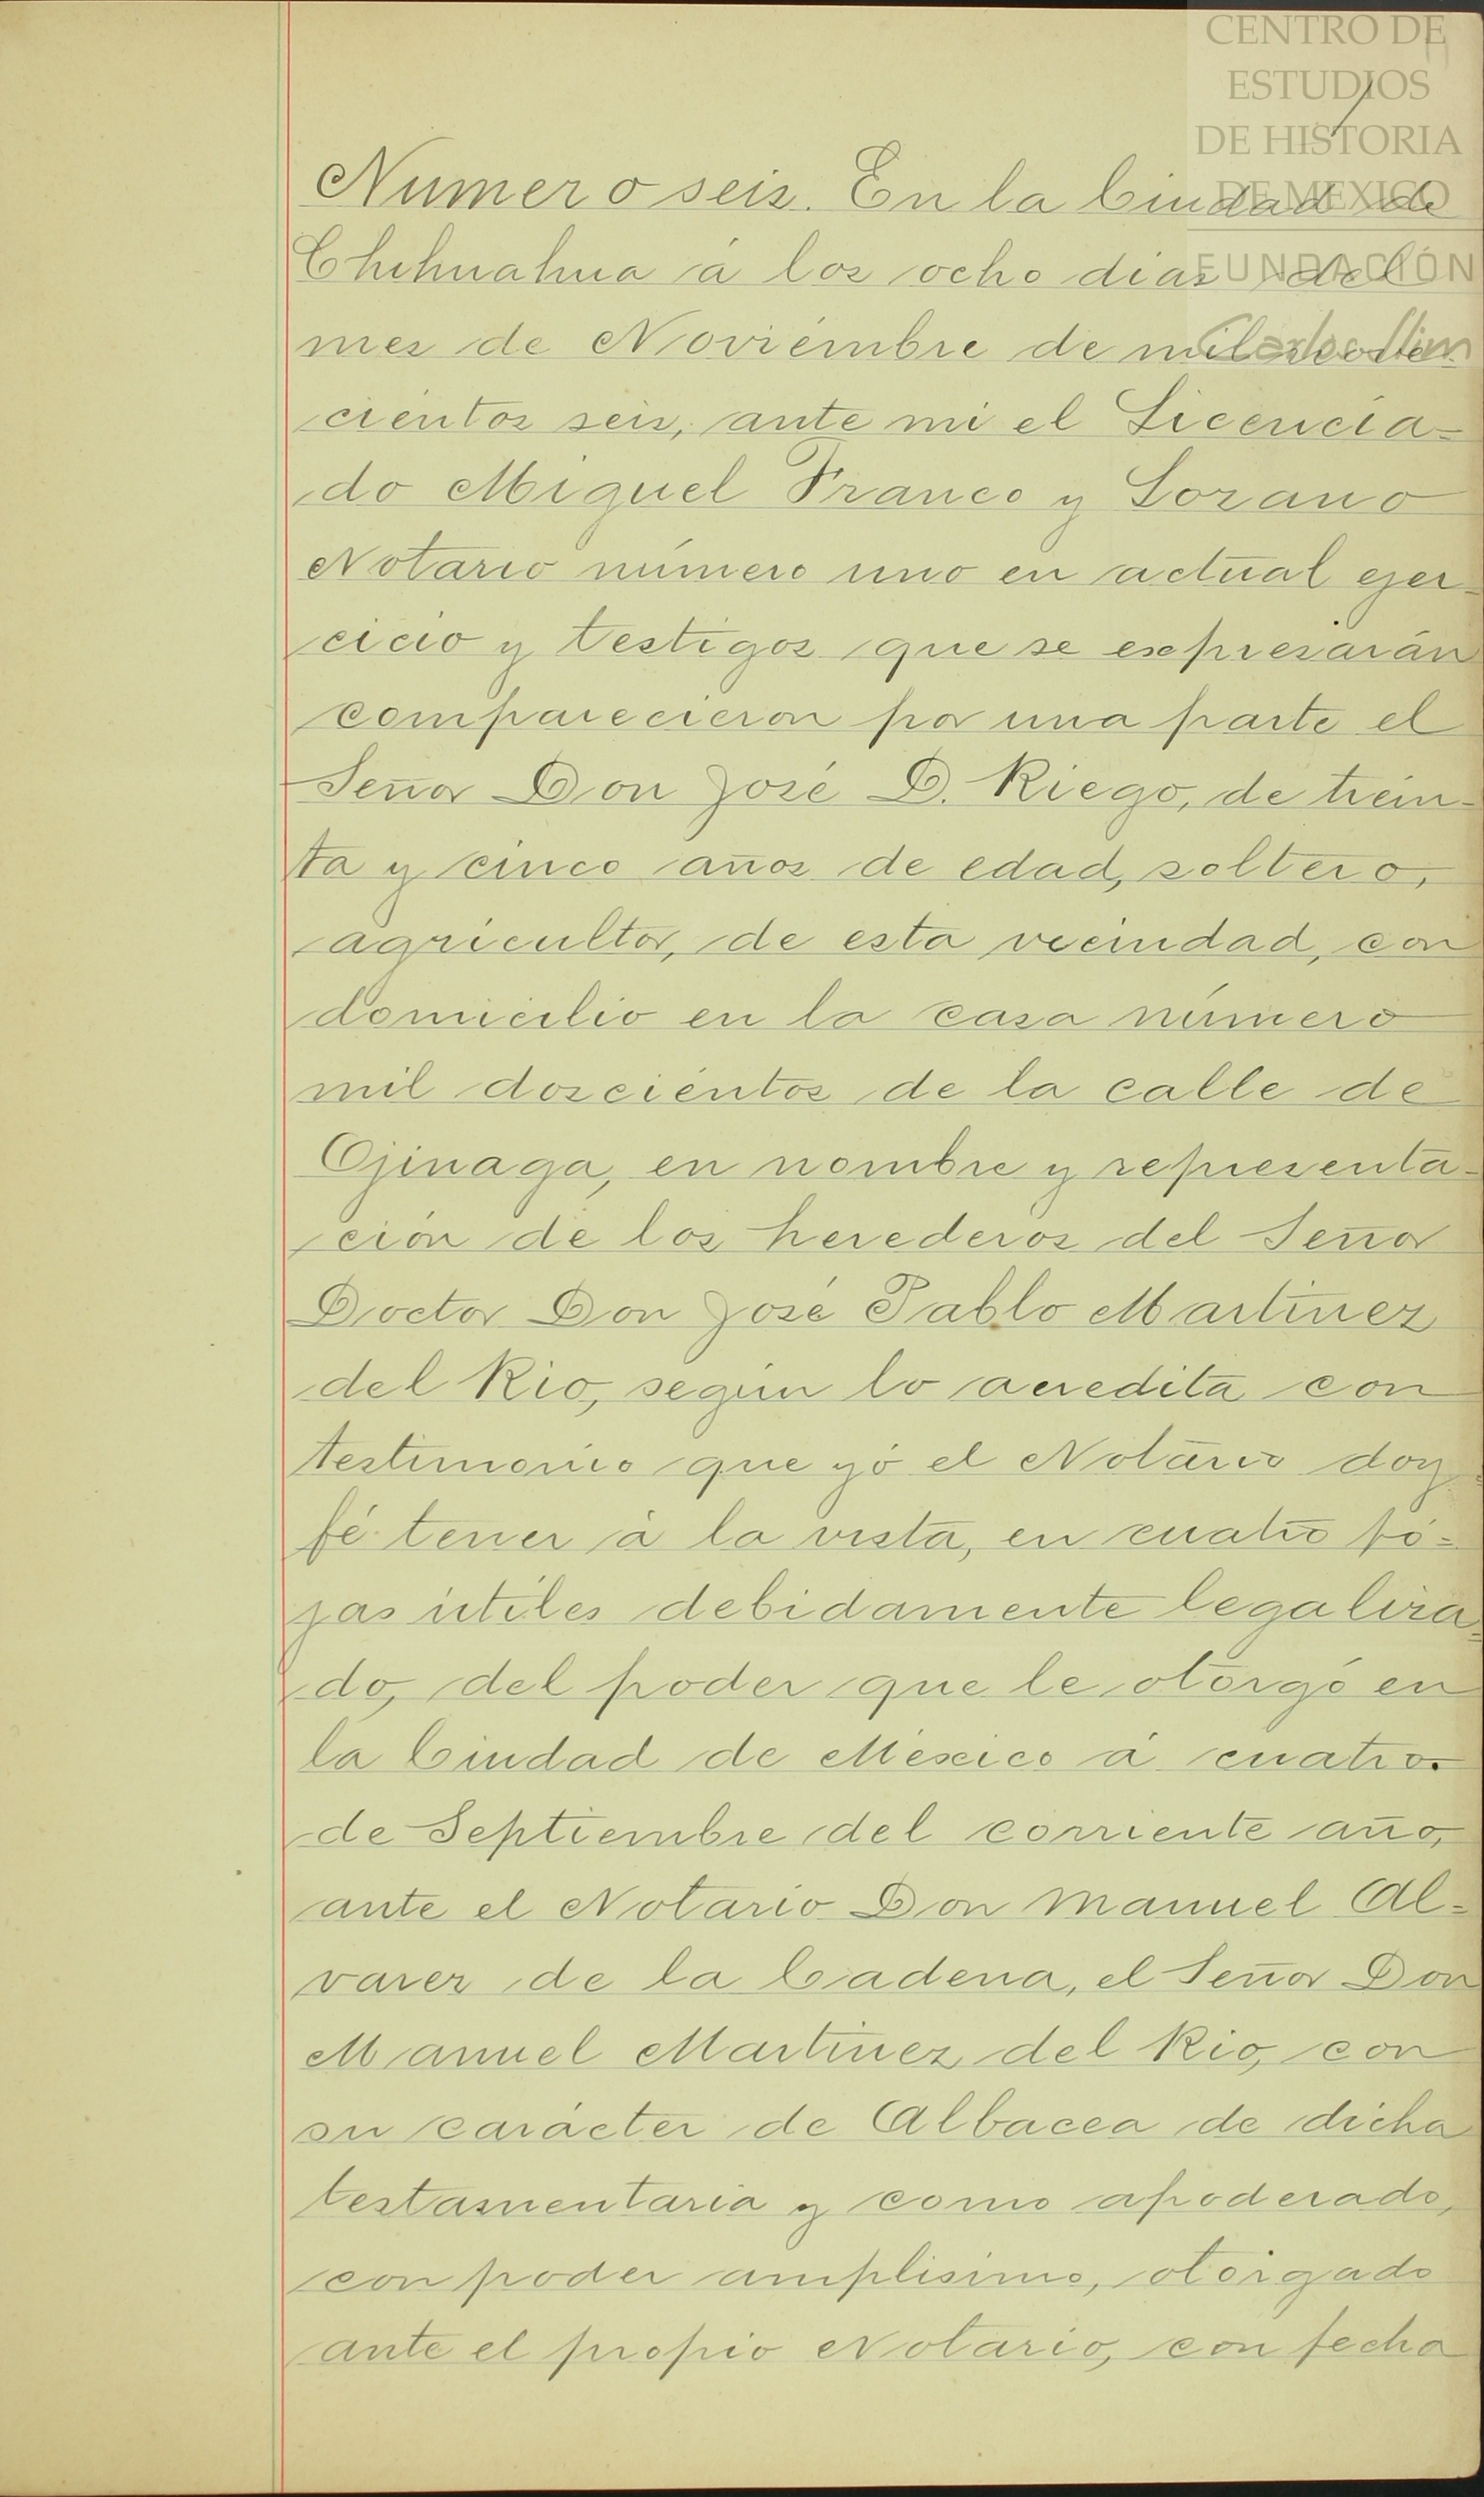 CENTRO DE
ESTUDIOS
DE HISTORIA
DE MEXICO
FUNDACIÓN
Carlos Slim
Numero seis. En la Ciudad de
Chihuahua á los ocho dias del
mes de Noviembre de mil nove-
cientos seis, ante mi el Licencia-
do Miguel Franco y Lozano
Notario número uno en actual ejer-
cicio y testigos que se expresarán
comparecieron por una parte el
Señor Don José D. Riego, de trein-
ta y cinco años de edad, soltero,
agricultor, de esta vecindad, con
domicilio en la casa número
mil doscientos de la calle de
Ojinaga, en nombre y representa-
ción de los herederos del Señor
Doctor Don José Pablo Martinez
del Rio, según lo acredita con
testimonio que yó el Notario doy
fé tener á la vista, en cuatro fó-
jas útiles debidamente legaliza-
do, del poder que le otorgó en
la Ciudad de México á cuatro
de Septiembre del corriente año,
ante el Notario Don Manuel Al-
varez de la Cadena, el Señor Don
Manuel Martinez del Rio, con
su carácter de Albacea de dicha
testamentaria y como apoderado,
con poder amplisimo, otorgado
ante el propio Notario, con fecha